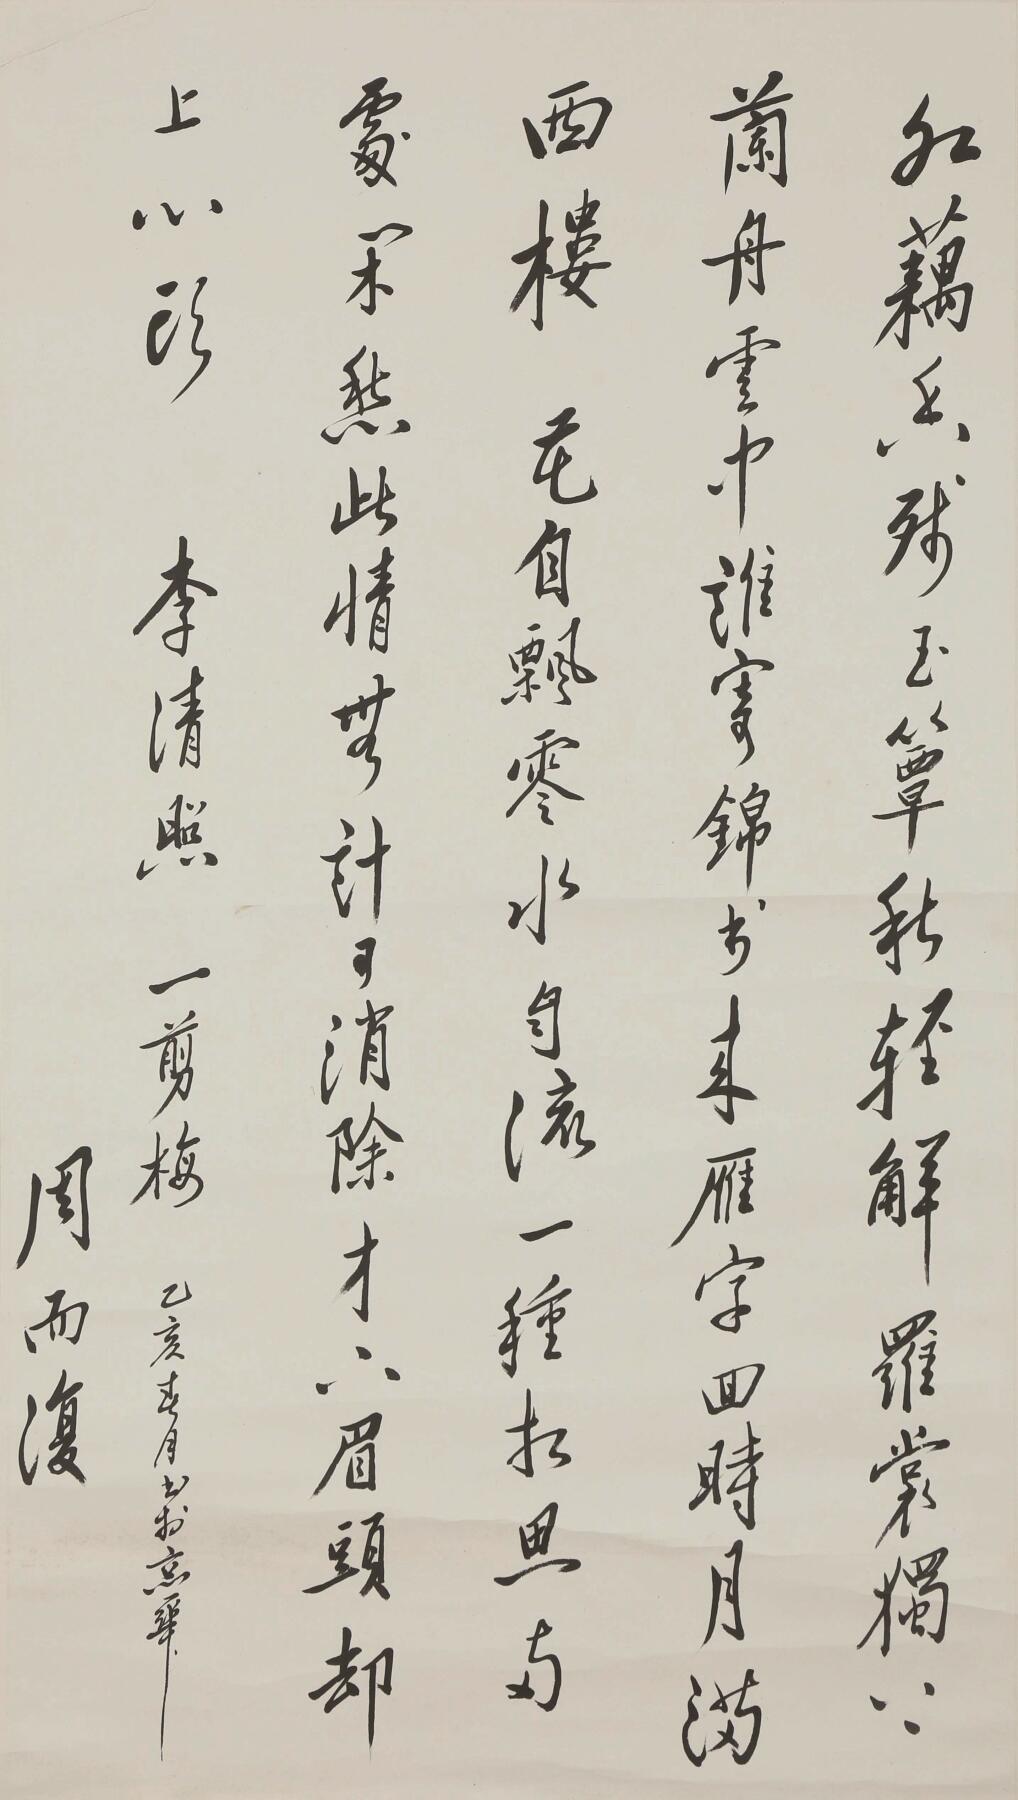 红藕香残玉簟秋轻解羅裳獨上
蘭舟雲中誰寄錦书来雁字回時月满
西樓 花自飄零水自流一種相思两
處闲愁此情無計可消除才下眉頭却
上心头 李清照 一剪梅 乙亥春月书於京華
周而復